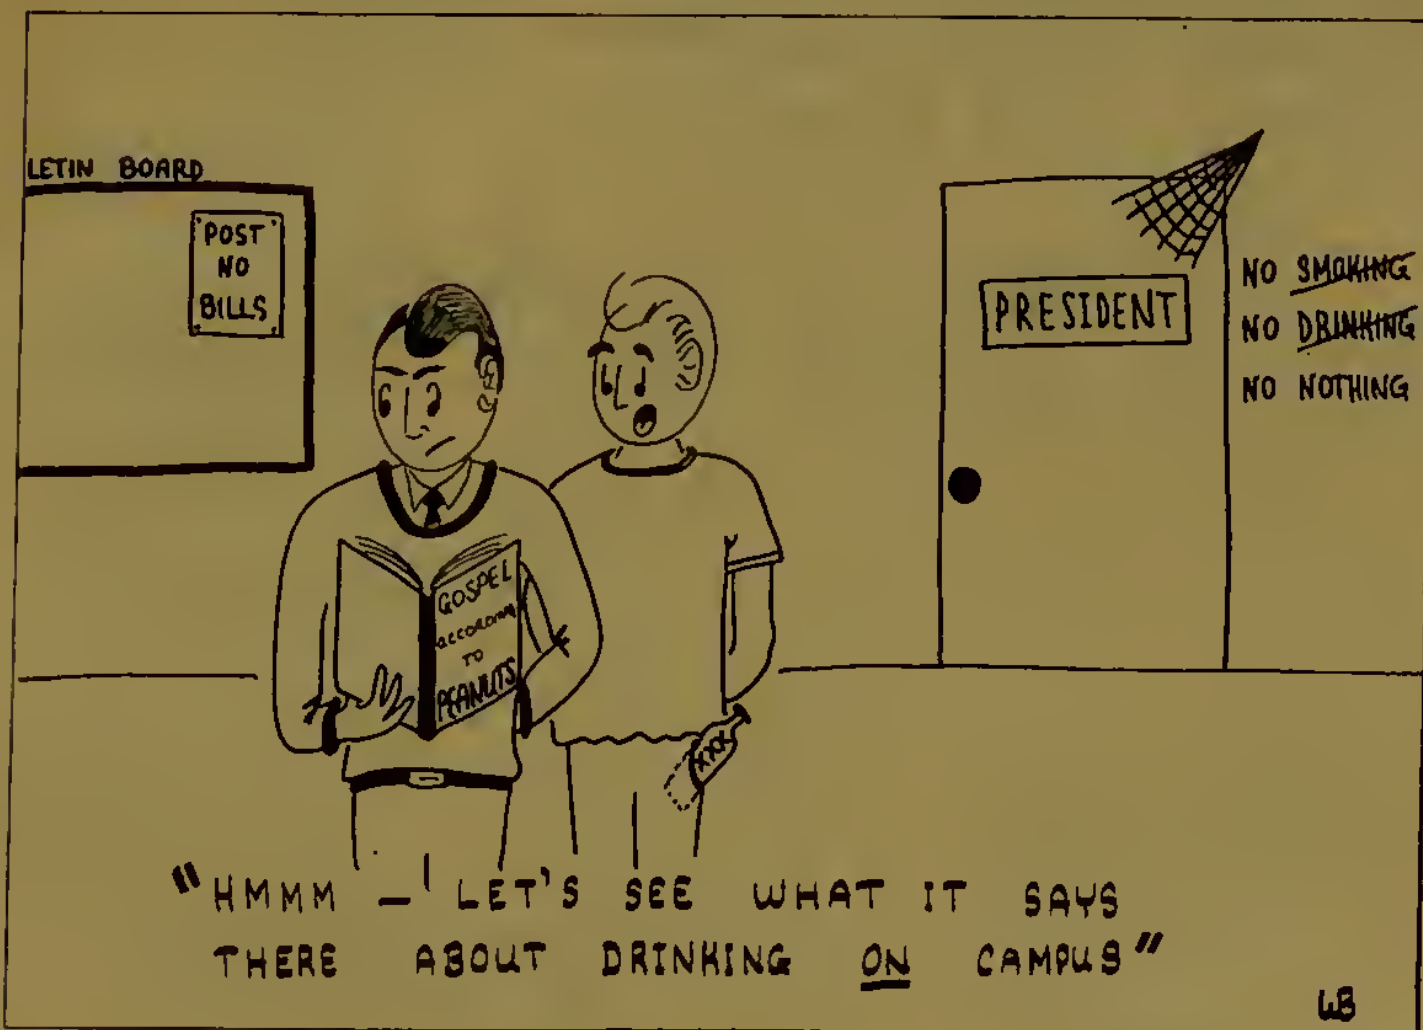 LETIN BOARD
POST
NO
BILLS
PRESIDENT
NO SMOKING
NO DRINKING
NO NOTHING
GOSPEL
ACCORDING
TO
PEANUTS
XXX
"HMMM – LET'S SEE WHAT IT SAYS
THERE ABOUT DRINKING ON CAMPUS"
WB